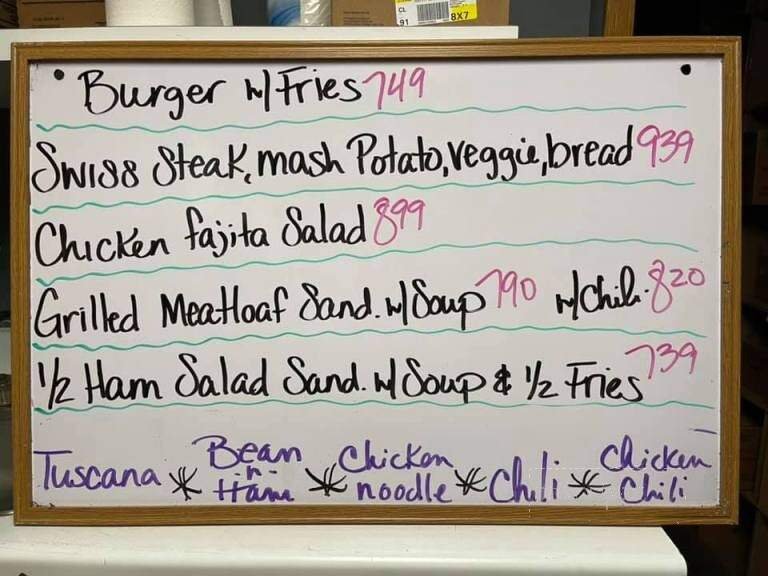 CL
91
8X7
Burger w/ Fries 749
Swiss Steak, mash Potato, veggie, bread 939
Chicken fajita Salad 899
Grilled Meatloaf Sand. w/ Soup 790 w/ Chili. 820
1/2 Ham Salad Sand. w/ Soup & 1/2 Fries 739
Tuscana * Bean -n- Ham * Chicken noodle * Chili * Chicken Chili